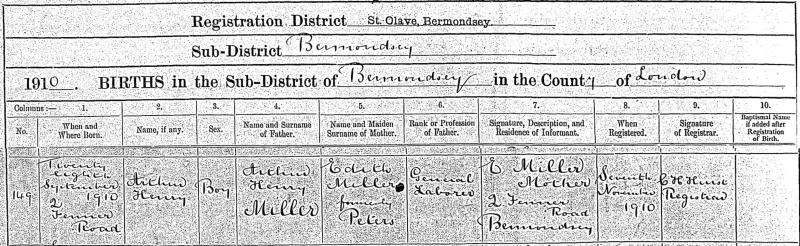 Registration District St. Olave, Bermondsey.
Sub-District Bermondsey
1910. BIRTHS in the Sub-District of Bermondsey in the County of London
Columns:— 1. 2. 3. 4. 5. 6. 7. 8. 9. 10.
No. When and Where Born. Name, if any. Sex. Name and Surname of Father. Name and Maiden Surname of Mother. Rank or Profession of Father. Signature, Description, and Residence of Informant. When Registered. Signature of Registrar. Baptismal Name if added after Registration of Birth.
149
Twenty
eighth
September
1910
2
Fenner
Road
Arthur
Henry
Boy
Arthur
Henry
Miller
Edith
Miller
formerly
Peters
General
Laborer
E Miller
Mother
2 Fenner
Road
Bermondsey
Seventh
November
1910
Registrar